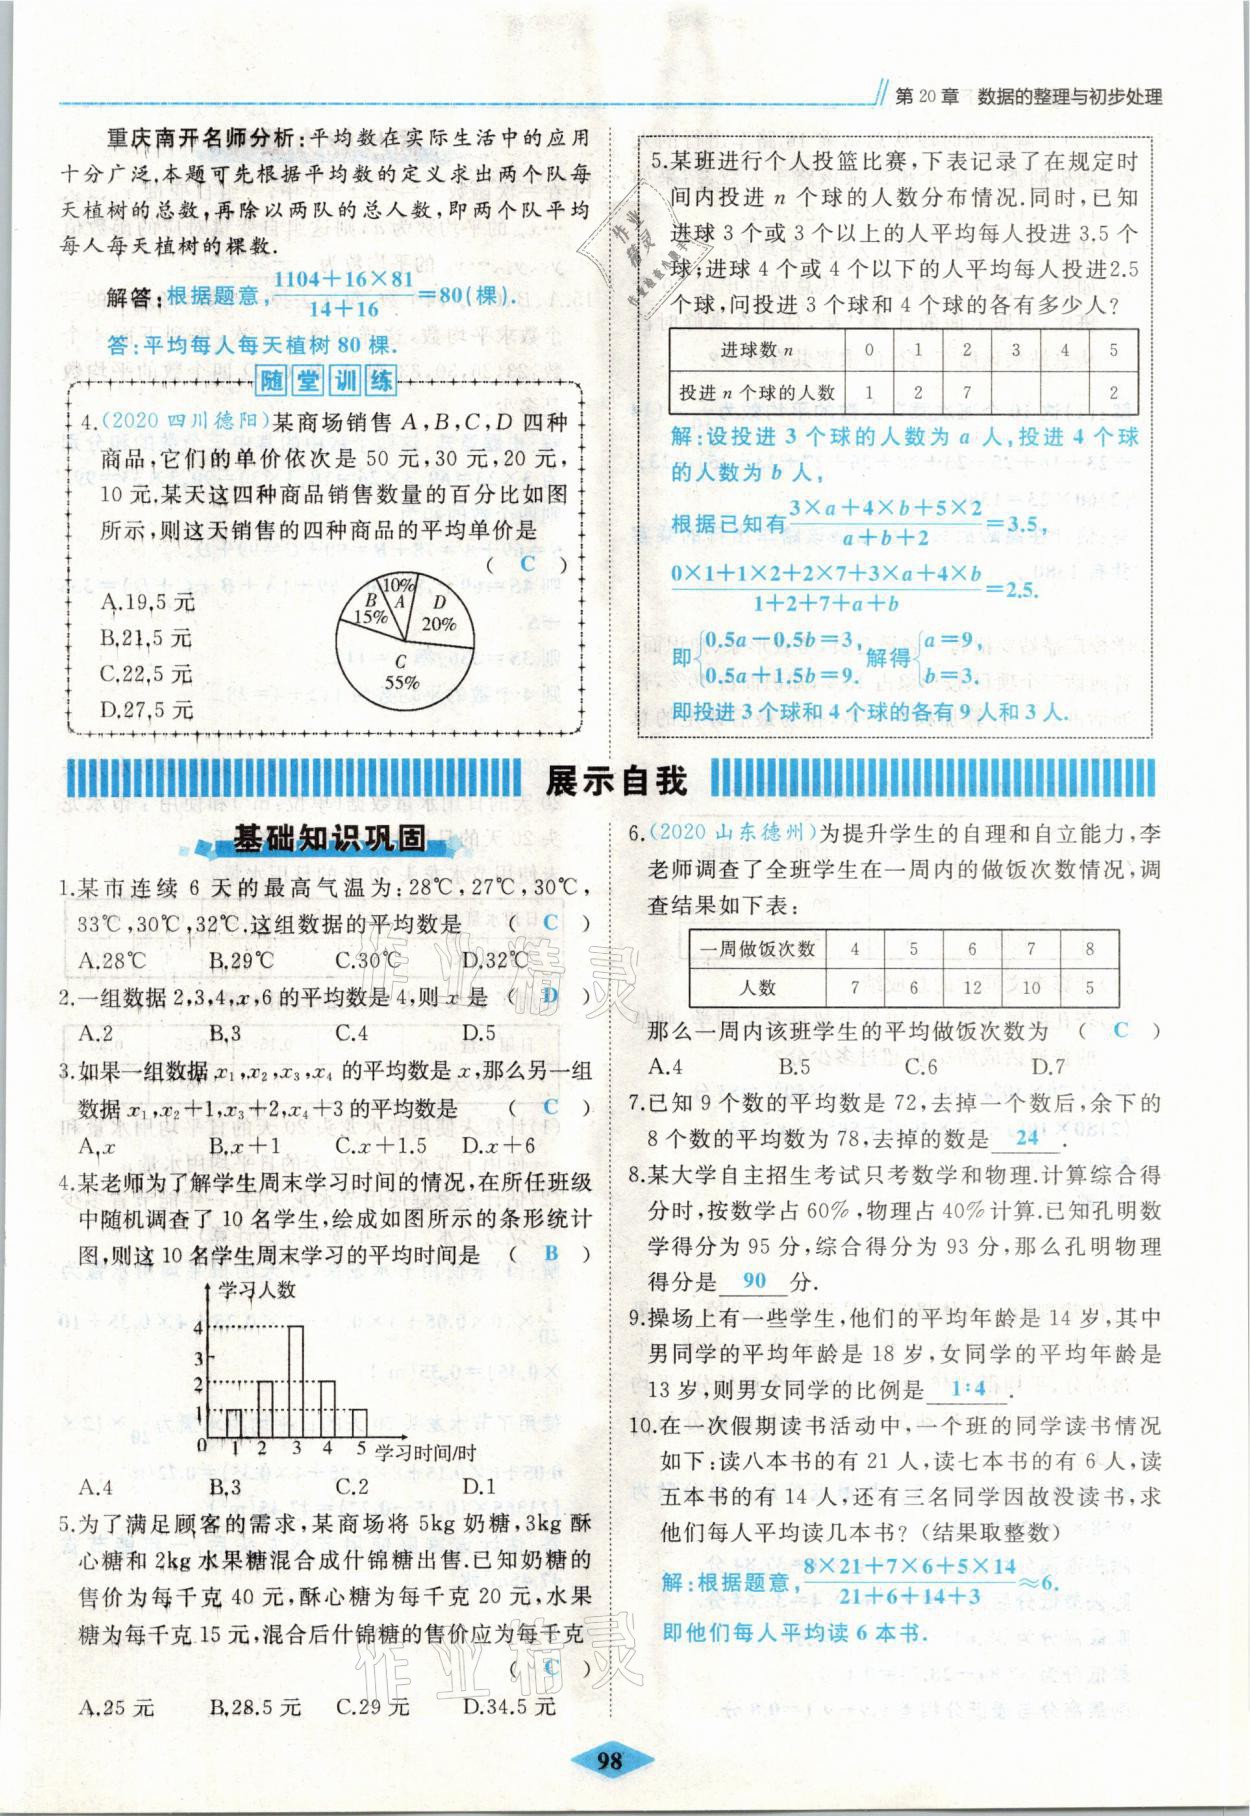 第20章 数据的整理与初步处理
重庆南开名师分析:平均数在实际生活中的应用
十分广泛.本题可先根据平均数的定义求出两个队每
天植树的总数,再除以两队的总人数,即两个队平均
每人每天植树的棵数.
解答:根据题意,(1104+16×81)/(14+16)=80(棵).
答:平均每人每天植树80棵.
随堂训练
4.(2020四川德阳)某商场销售A,B,C,D四种
商品,它们的单价依次是50元,30元,20元,
10元.某天这四种商品销售数量的百分比如图
所示,则这天销售的四种商品的平均单价是
( C )
A.19.5元
B.21.5元
C.22.5元
D.27.5元
10%
A
B
15%
D
20%
C
55%
5.某班进行个人投篮比赛,下表记录了在规定时
间内投进n个球的人数分布情况.同时,已知
进球3个或3个以上的人平均每人投进3.5个
球;进球4个或4个以下的人平均每人投进2.5
个球,问投进3个球和4个球的各有多少人?
进球数n 0 1 2 3 4 5
投进n个球的人数 1 2 7 2
解:设投进3个球的人数为a人,投进4个球
的人数为b人,
根据已知有(3×a+4×b+5×2)/(a+b+2)=3.5,
(0×1+1×2+2×7+3×a+4×b)/(1+2+7+a+b)=2.5.
即{0.5a-0.5b=3, 0.5a+1.5b=9. 解得{a=9, b=3.
即投进3个球和4个球的各有9人和3人.
展示自我
基础知识巩固
1.某市连续6天的最高气温为:28℃,27℃,30℃,
33℃,30℃,32℃.这组数据的平均数是 ( C )
A.28℃ B.29℃ C.30℃ D.32℃
2.一组数据2,3,4,x,6的平均数是4,则x是 ( D )
A.2 B.3 C.4 D.5
3.如果一组数据x₁,x₂,x₃,x₄的平均数是x,那么另一组
数据x₁,x₂+1,x₃+2,x₄+3的平均数是 ( C )
A.x B.x+1 C.x+1.5 D.x+6
4.某老师为了解学生周末学习时间的情况,在所任班级
中随机调查了10名学生,绘成如图所示的条形统计
图,则这10名学生周末学习的平均时间是 ( B )
学习人数
4
3
2
1
0 1 2 3 4 5 学习时间/时
A.4 B.3 C.2 D.1
5.为了满足顾客的需求,某商场将5kg奶糖,3kg酥
心糖和2kg水果糖混合成什锦糖出售.已知奶糖的
售价为每千克40元,酥心糖为每千克20元,水果
糖为每千克15元,混合后什锦糖的售价应为每千克
( C )
A.25元 B.28.5元 C.29元 D.34.5元
6.(2020山东德州)为提升学生的自理和自立能力,李
老师调查了全班学生在一周内的做饭次数情况,调
查结果如下表:
一周做饭次数 4 5 6 7 8
人数 7 6 12 10 5
那么一周内该班学生的平均做饭次数为 ( C )
A.4 B.5 C.6 D.7
7.已知9个数的平均数是72,去掉一个数后,余下的
8个数的平均数为78,去掉的数是 24 .
8.某大学自主招生考试只考数学和物理.计算综合得
分时,按数学占60%,物理占40%计算.已知孔明数
学得分为95分,综合得分为93分,那么孔明物理
得分是 90 分.
9.操场上有一些学生,他们的平均年龄是14岁,其中
男同学的平均年龄是18岁,女同学的平均年龄是
13岁,则男女同学的比例是 1:4 .
10.在一次假期读书活动中,一个班的同学读书情况
如下:读八本书的有21人,读七本书的有6人,读
五本书的有14人,还有三名同学因故没读书,求
他们每人平均读几本书?(结果取整数)
解:根据题意,(8×21+7×6+5×14)/(21+6+14+3)≈6.
即他们每人平均读6本书.
98
作业精灵
作业精灵